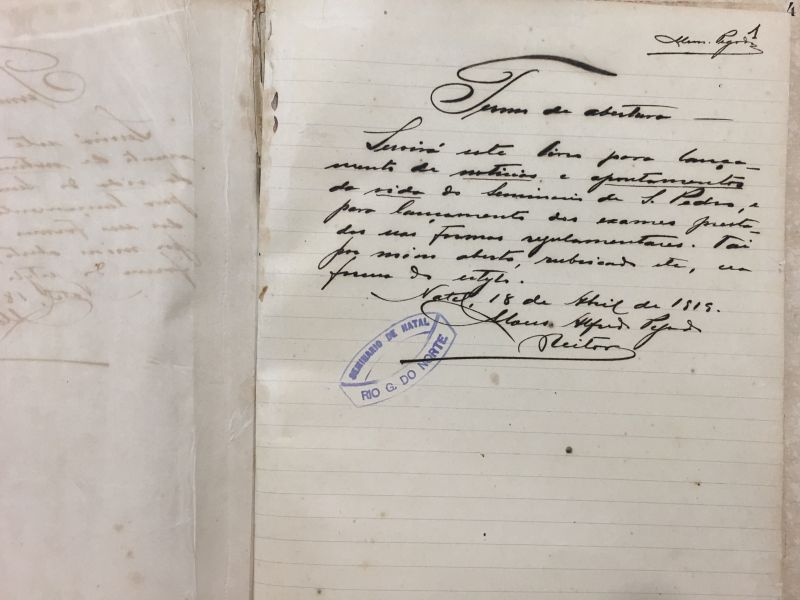 4
1
Mons. Pegado
Termo de abertura
Servirá este livro para lança-
mento de noticias e apontamentos
da vida do Seminario de S. Pedro, e
para lançamento dos exames presta-
dos nas formas regulamentares. Vai
por mim aberto, rubricado etc, na
forma do estylo.
Natal, 18 de Abril de 1919.
Mons Alfredo Pegado
Reitor
SEMINARIO DE NATAL
RIO G. DO NORTE